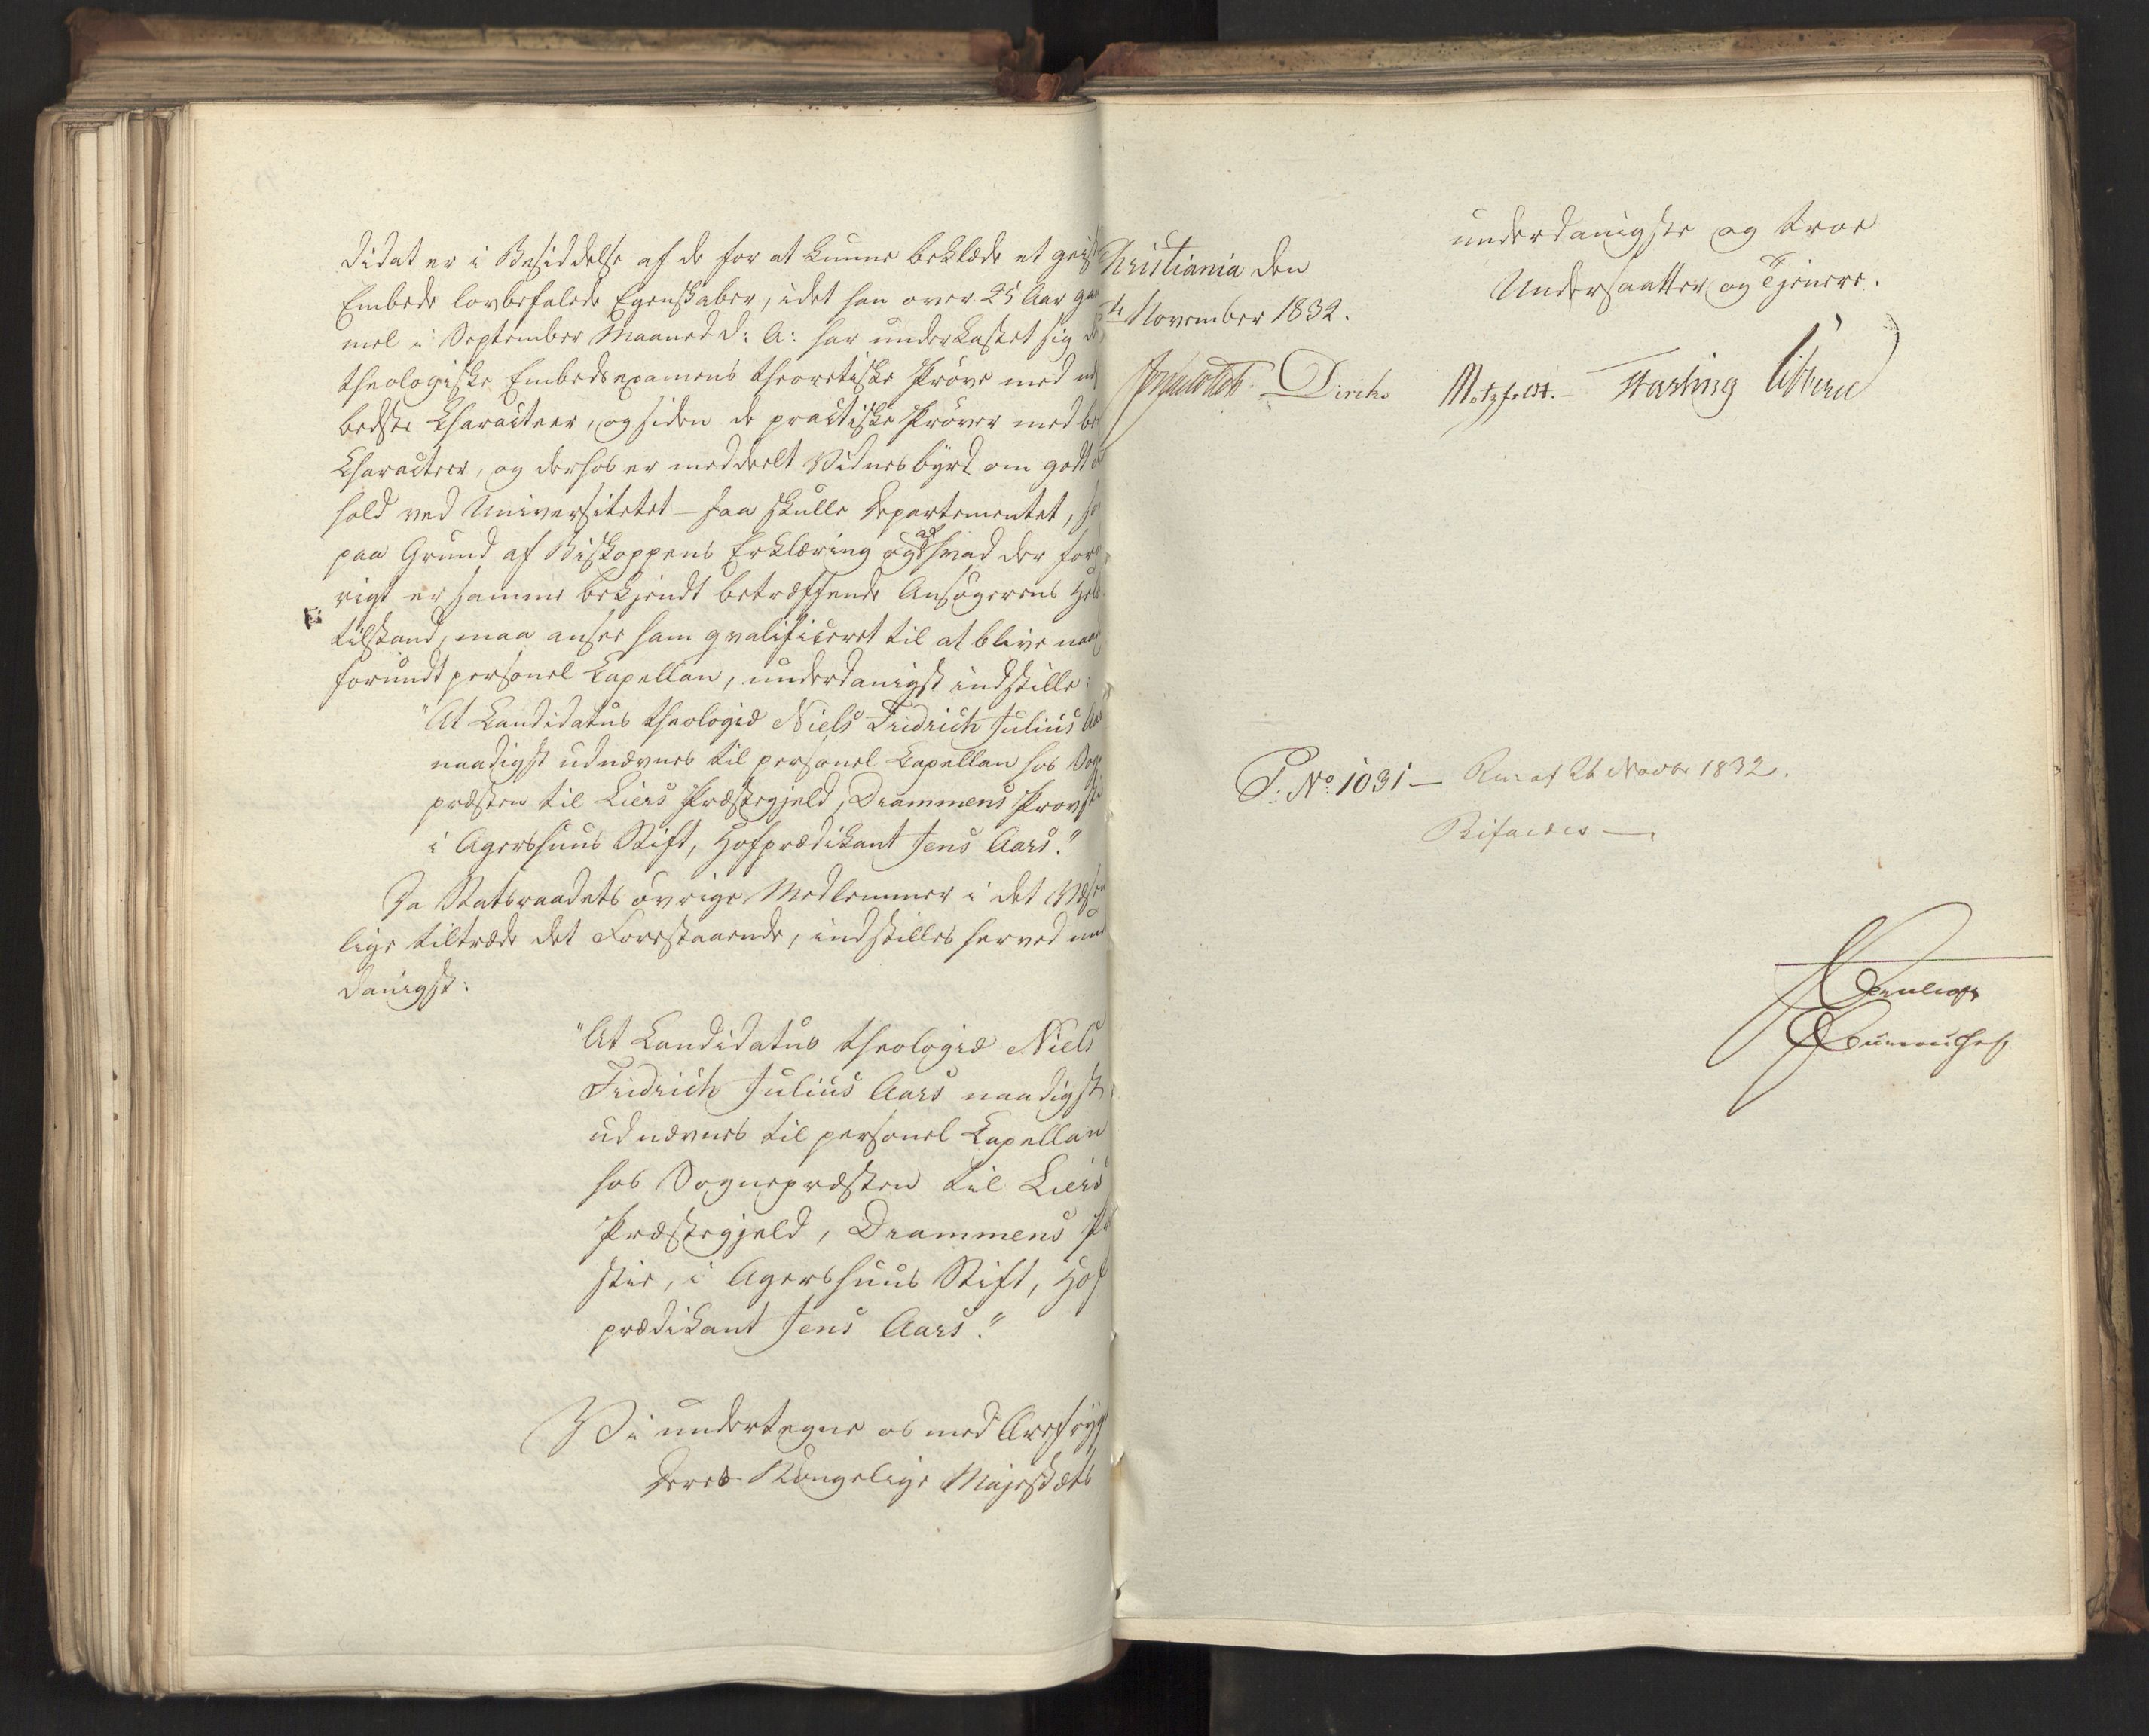 didat er i Besiddelse af de for at kunne beklæde et geist
Embede lovbefalede Egenskaber, idet han over 25 Aar gam
mel i September Maaned d: A: har underkastet sig d
theologiske Embedsexamens theoretiske Prøve med
bedste Characteer, og siden de practiske Prøver med be
Characteer, og derhos er meddeelt Vidnesbyrd om godt
hold ved Universitetet – saa skulle Departementet,
paa Grund af Biskoppens Erklæring og af hvad der for
rigt er samme bekjendt betræffende Ansøgerens
tilstand, maa ansee ham qvalificeret til at blive naad
forundt personel Capellan, underdanigst indstille:
"At Candidatus theologiæ Niels Fridrich Julius Aars
naadigst udnævnes til personel Capellan hos Sogne
præsten til Liers Præstegjeld, Drammens Provsti
i Agershuus Stift, Hofprædikant Jens Aars."
Da Statsraadets øvrige Medlemmer i det Væsent
lige tiltræde det Forestaaende, indstilles herved und
danigst:
"At Candidatus theologiæ Niels
Fridrich Julius Aars naadigst
udnævnes til personel Capellan
hos Sognepræsten til Liers
Præstegjeld, Drammens P
stie, i Agershuus Stift, Hof
prædikant Jens Aars."
Vi undertegne os med Ærefrygt
Deres Kongelige Majestæts
Christiania den
November 1832.
underdanigste og troe
Undersaatter og Tjenere.
Diriks Motzfeldt. Fasting
P. No 1031 – Res: af 26 Novbr 1832.
Bifaldes —